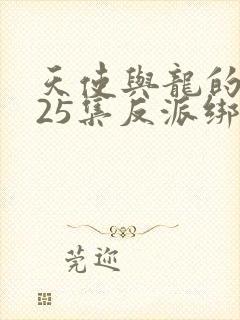 天使與龍的
25集反派綁
莞迩